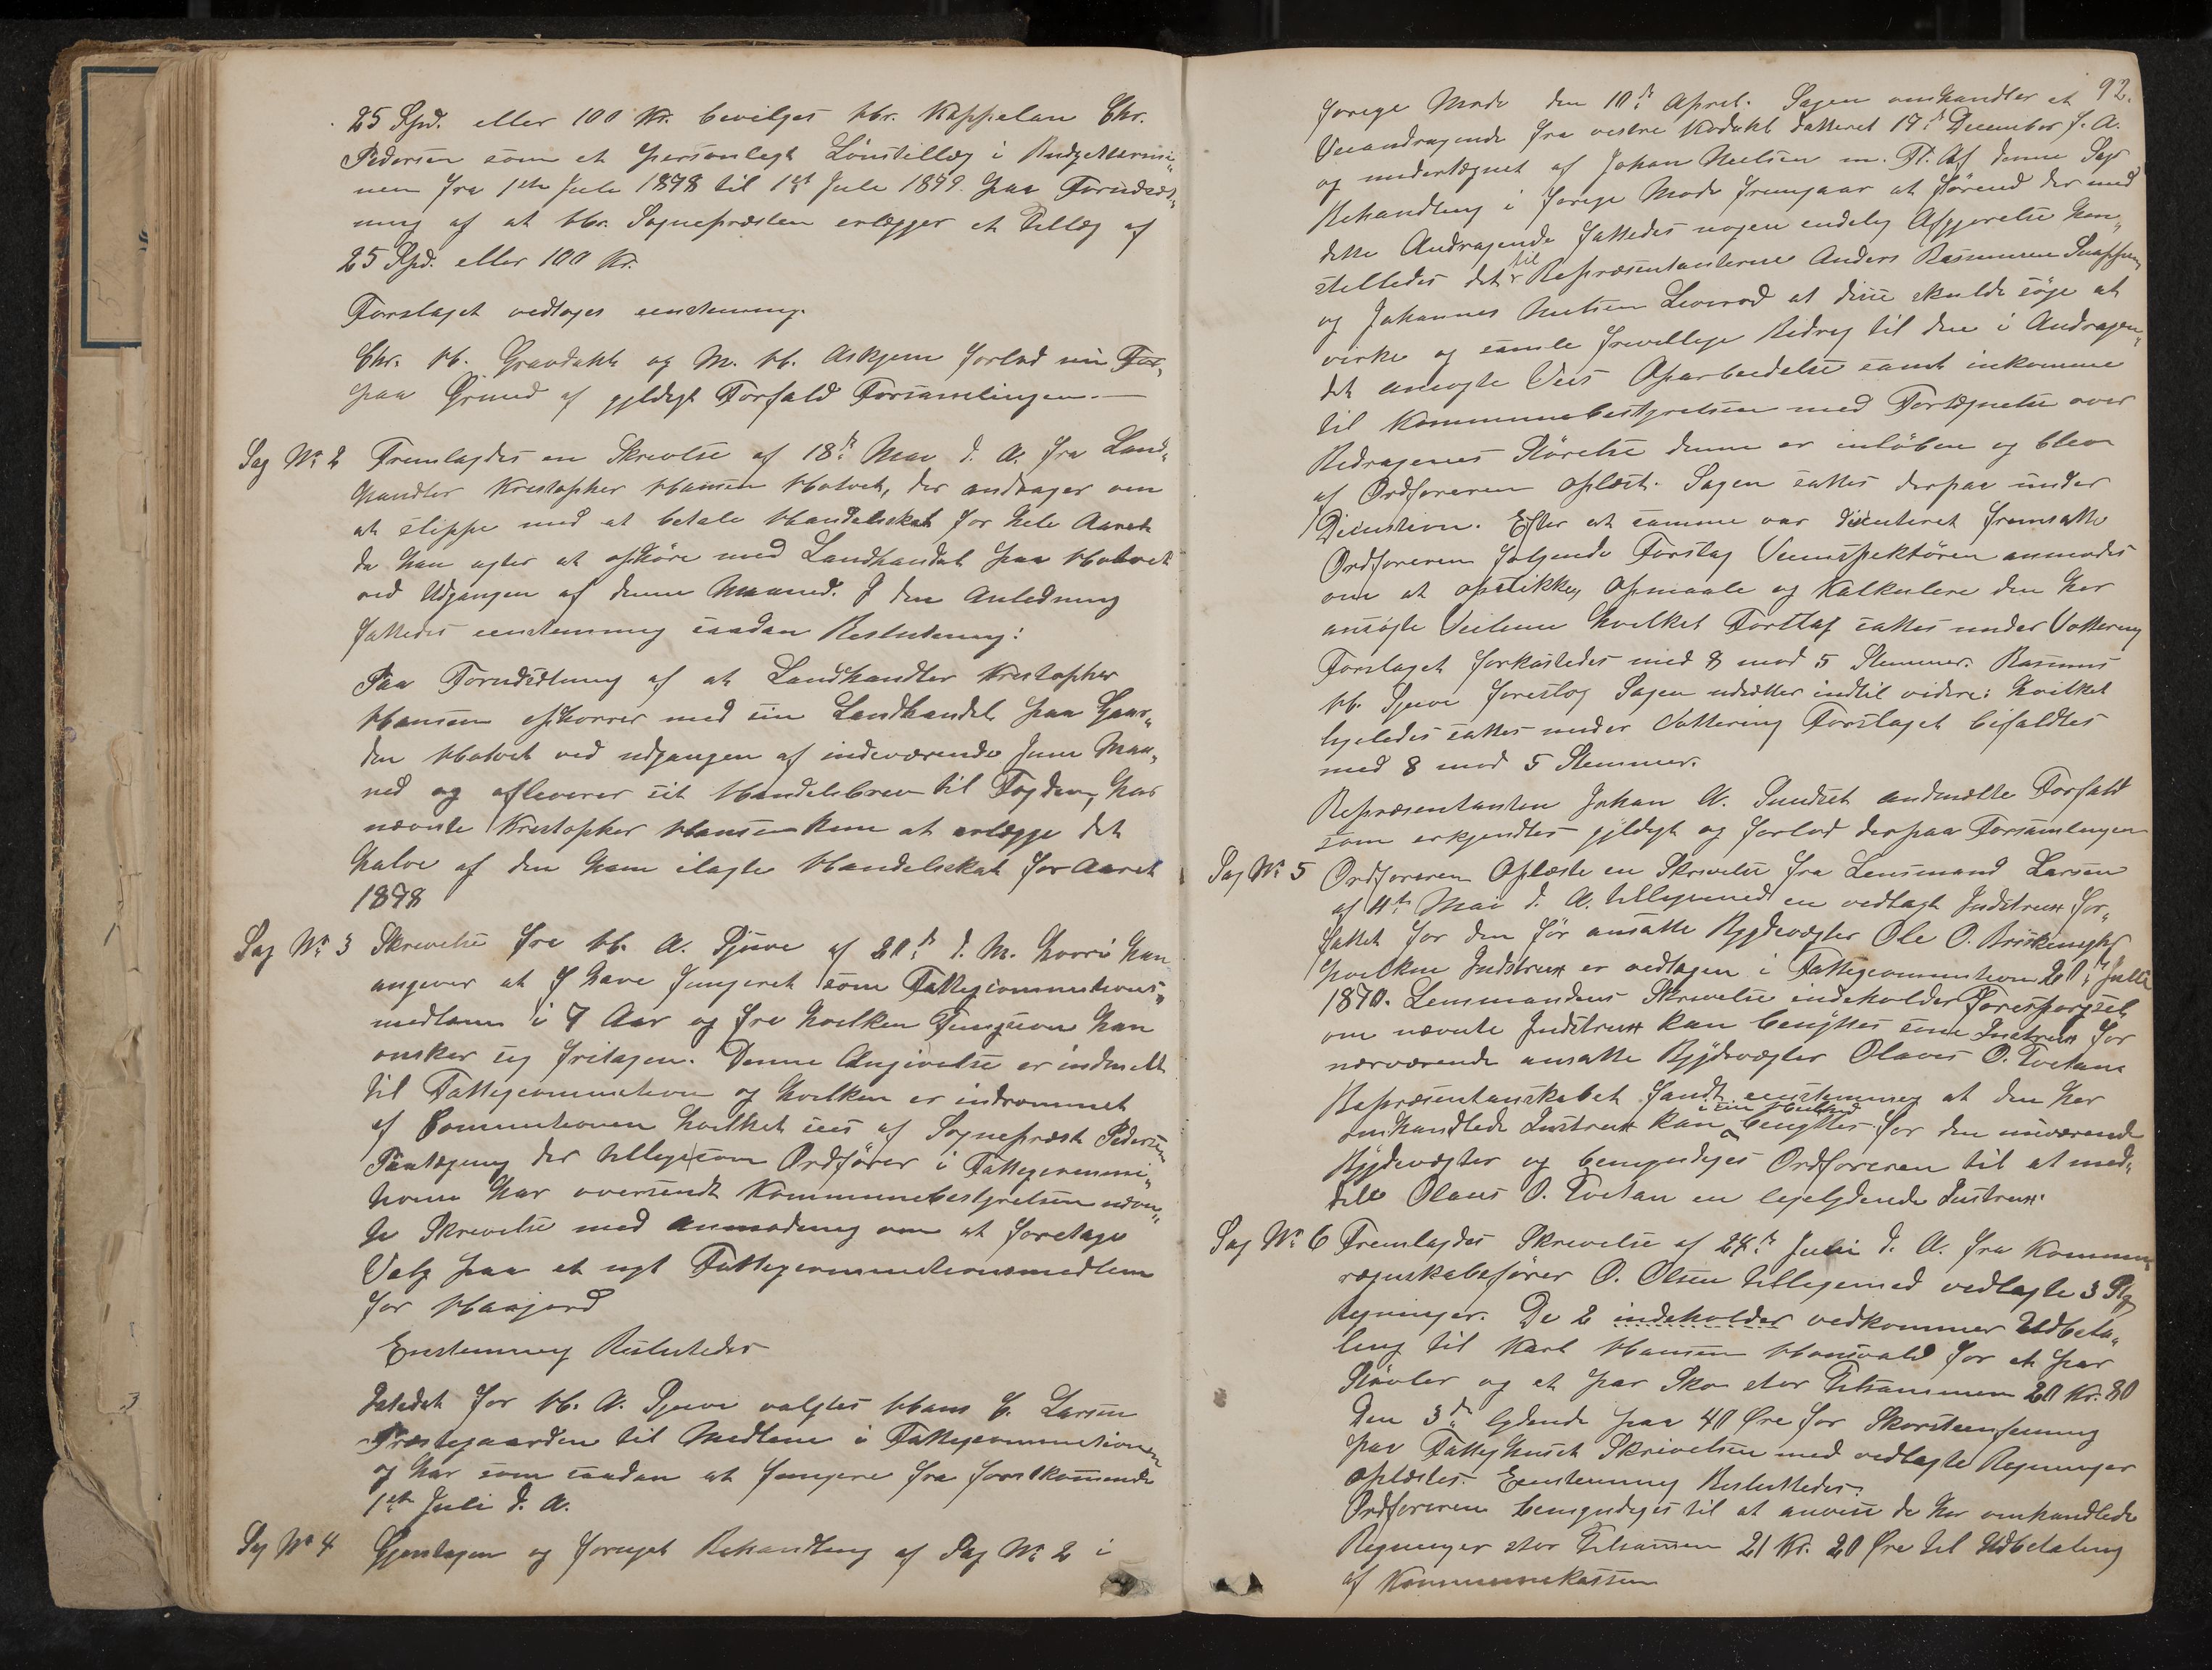 25 Spd. eller 100 Kr. bevilges Hr. Kappelan Chr.
Pedersen som et personligt Lönstillæg i Budgettermi„
nen fra 1ste Juli 1878 til 1ste Juli 1879. paa Forudsæt„
ning af at Hr. Sognepræsten erlægger et Tillæg af
25 Spd. eller 100 Kr.
Forslaget vedtoges eenstemmig.
Chr. H. Gravdahl og M. H. Askjem forlod nu For„
paa Grund af gyldigt Forfald Forsamlingen.—
Sag No 2 Fremlagdes en Skrivelse af 18de Mai d. A. fra Land„
handler Kristopher Hansen Hotvet, der andrager om
at slippe med at betale Handelsskat for hele Aaret
da han agter at ophöre med Landhandel paa Hotvet
ved Udgangen af denne Maaned. I den Anledning
fattedes eenstemmig saadan Beslutning:
Paa Forudsætning af at Landhandler Kristopher
Hansen ophorer med sin Landhandel paa Gaar„
den Hotvet ved udgangen af indeværende Juni Maa„
ned og afleverer sit Handelsbrev til Fogden, har
nævnte Kristopher Hansen kun at erlægge det
halve af den ham ilagte Handelsskat for Aaret
1878
Sag No 3 Skrivelse fra H. A. Tjuve af 20de d. M. hvori han
angiver at have fungeret som Fattigcommissions„
medlem i 7 Aar og fra hvilken Funktion han
onsker sig fritagen. Denne Angivelse er indmeldt
til Fattigcommission og hvilken er indrømmet
af Commissionen hvilket sees af Sognepræst Pedersen
Paategning der tilligesom Ordfører i Fattigcommi„
tionen har oversendt Kommunebestyrelsen
Skrivelse med Anmodning om at foretage
Valg paa et nyt Fattigcommissionsmedlem
for Haajord
Enstemmig Besluttedes
Istedet for H. A. Tjuve valgtes Hans C. Larsen
Præstegaarden til Medlem i Fattigcommissionen
og har som saadan at fungere fra forstkommende
1ste Juli d. A.
Sag No 4 Gjentagen og fornyet Behandling af Sag No 2 i
92.
forrige Mode den 10de April. Sagen omhandler et
Veiandragende fra vestre Kodahl datteret 17de December f. A.
og undertegnet af Johan Nielsen m. Fl. Af denne Sags
Behandling i forrige Mode fremgaar at förend der med
dette Andragende fattedes nogen endelig Afgjorelse hen„
stilledes det til Repræsentanterne Anders Rasmussen Snappen
og Johannes Nielsen Leverod at disse skulde söge at
virke og samle frivillige Bidrag til den i Andragen„
det ansogte Veis Oparbeidelse samt inkomme
til Kommunebestyrelsen med Fortegnelse over
Bidragenes Störelse denne er inlöben og blev
af Ordföreren oplæst. Sagen sattes derpaa under
Discustion. Efter at samme var discuteret fremsatte
Ordföreren folgende Forslag Veiinspektören anmodes
om at opstikke, opmaale og kalkulere den her
ansögte Veilinie hvilket Forslag sattes under Vottering
Forslaget forkastedes med 8 mod 5 Stemmer. Rasmus
H. Tjuve foreslog Sagen udsættes indtil videre: hvilket
ligeledes sattes under Vottering Forslaget bifaldtes
med 8 mod 5 Stemmer.
Repræsentanten Johan A. Sundset andmeldte Forfald
som erkjendtes gyldigt og forlod derpaa Forsamlingen
Sag No 5 Ordföreren Oplæste en Skrivelse fra Lensmand Larsen
af 4de Mai d. A. tilligemed en vedlagt Indstrux for„
fattet for den för ansatte Bygdevægter Ole O.
hvilken Indstrux er vedtagen i Fattigcommissionen 20de Juli
1870. Lensmandens Skrivelse indeholder Forespørgsel
om nævnte Indstrux kan benyttes som Instrux for
nærværende ansatte Bygdevægter Olaves O. Tvetan
Repræsentanskabet fandt eenstemmig at den her
omhandlede Instrux kan i sin Helhed benyttes for den nuværende
Bygdevægter og bemyndiges Ordføreren til at med„
dele Olaus O. Tvetan en ligelydende Instrux.
Sag No 6 Fremlagdes Skrivelse af 24de Juni d. A. fra Kommune„
regnskabsfører O. Olsen tilligemed vedlagte 3
Regninger. De 2 indeholder vedkommer Udbeta„
ling til Karl Hansen Honsvald for et par
Stövler og et par Sko stor tilsammen 20 Kr. 80
Den 3de lydende paa 40 Øre for Skorsteensfeining
paa Fattighuset Skrivelsen med vedlagte Regninger
oplæstes. Eenstemmig Besluttedes.
Ordföreren bemyndiges til at anvise de her omhandlede
Regninger stor tilsammen 21 Kr. 20 Øre til Udbetaling
af Kommunekassen